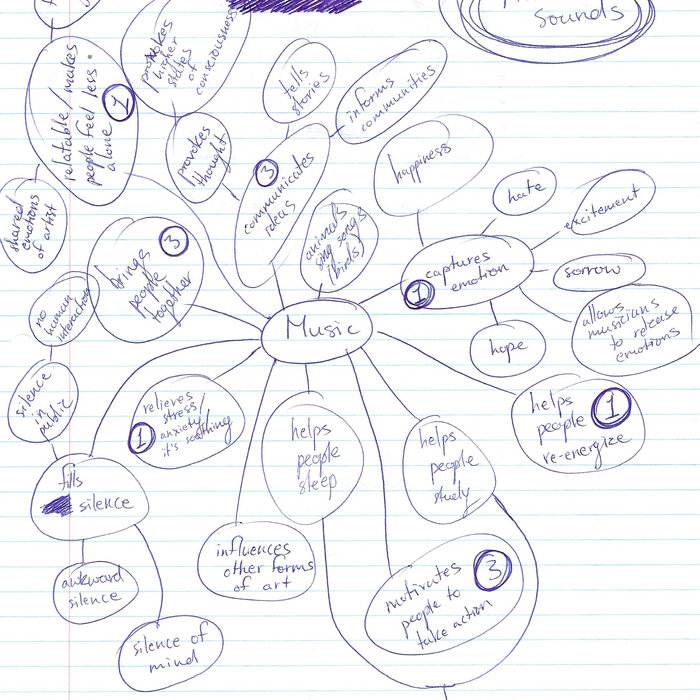 sounds
provokes
higher
states
of
consciousness
relatable/makes
people feel less
alone
1
tells
stories
informs
communities
provokes
thought
3
communicates
ideas
happiness
hate
excitement
shared
emotions
of artist
brings
people
together
3
animals
sing songs
(birds)
captures
emotion
1
sorrow
no
human
interaction
Music
hope
allows
musicians
to release
emotions
silence
in
public
relieves
stress/
anxiety/
it's soothing
1
helps
people
sleep
helps
people
study
helps
people
re-energize
1
fills
silence
influences
other forms
of art
motivates
people to
take action
3
awkward
silence
silence of
mind